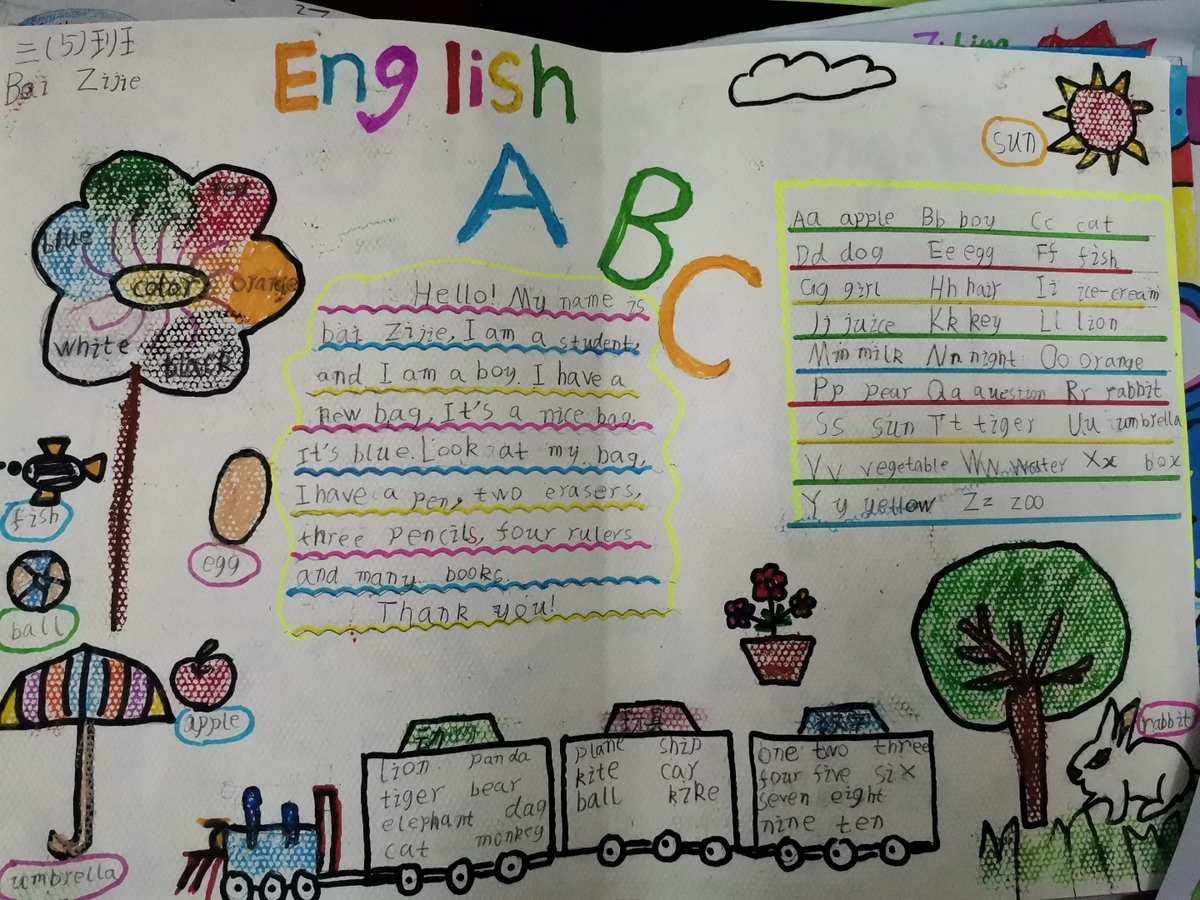 三(5)班
Bai Zijie
English
A B C
sun
red
blue
orange
color
white
black
Hello! My name is
bai Zijie, I am a student,
and I am a boy. I have a
new bag, It's a nice bag,
It's blue. Look at my bag,
I have a pen, two erasers,
three pencils, four rulers
and many books.
Thank you!
Aa apple Bb boy Cc cat
Dd dog Ee egg Ff fish
Gg girl Hh hair Ii ice-cream
Jj juice Kk key Ll lion
Mm milk Nn night Oo orange
Pp pear Qq question Rr rabbit
Ss sun Tt tiger Uu umbrella
Vv vegetable Ww water Xx box
Yy yellow Zz zoo
fish
egg
ball
apple
umbrella
rabbit
动物
lion panda
tiger bear
elephant dag
cat monkey
玩具
plane ship
kite car
ball kike
数字
one two three
four five six
seven eight
nine ten